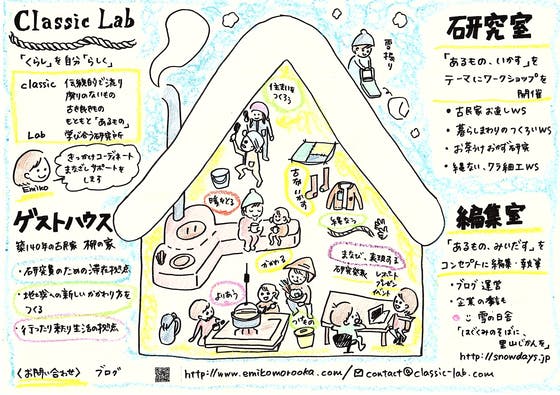 Classic Lab
「くらし」を自分「らしく」
classic 伝統的で流行り
廃りのないもの
古き良きもの
もともと「あるもの」
Lab 学び合う研究所
きっかけコーディネート
まなざしサポートを
します
Emiko
ゲストハウス
築140年の古民家 柳の家
・研究員のための滞在拠点
・地域への新しいかかわり方を
つくる
・行ったり来たり生活の拠点
住まいを
つくろう
雪掘り
古布いかす
暖をとる
縄をなう
かがやる
まなび、表現する
研究発表
レスポート
プレゼン
イベント
よりあう
つけもの
研究室
「あるもの、いかす」を
テーマにワークショップを
開催
・古民家お直しWS
・暮らしまわりのつくろいWS
・お茶うけおかず研究
・縄ない、ワラ細工WS
編集室
「あるもの、みいだす」を
コンセプトに編集・執筆
・ブログ運営
・企業の寄稿
雪の日舎
「はぐくみのそばに、
里山じかんを」
http://snowdays.jp
〈お問い合わせ〉 ブログ http://www.emikomorooka.com/ contact@classic-lab.com